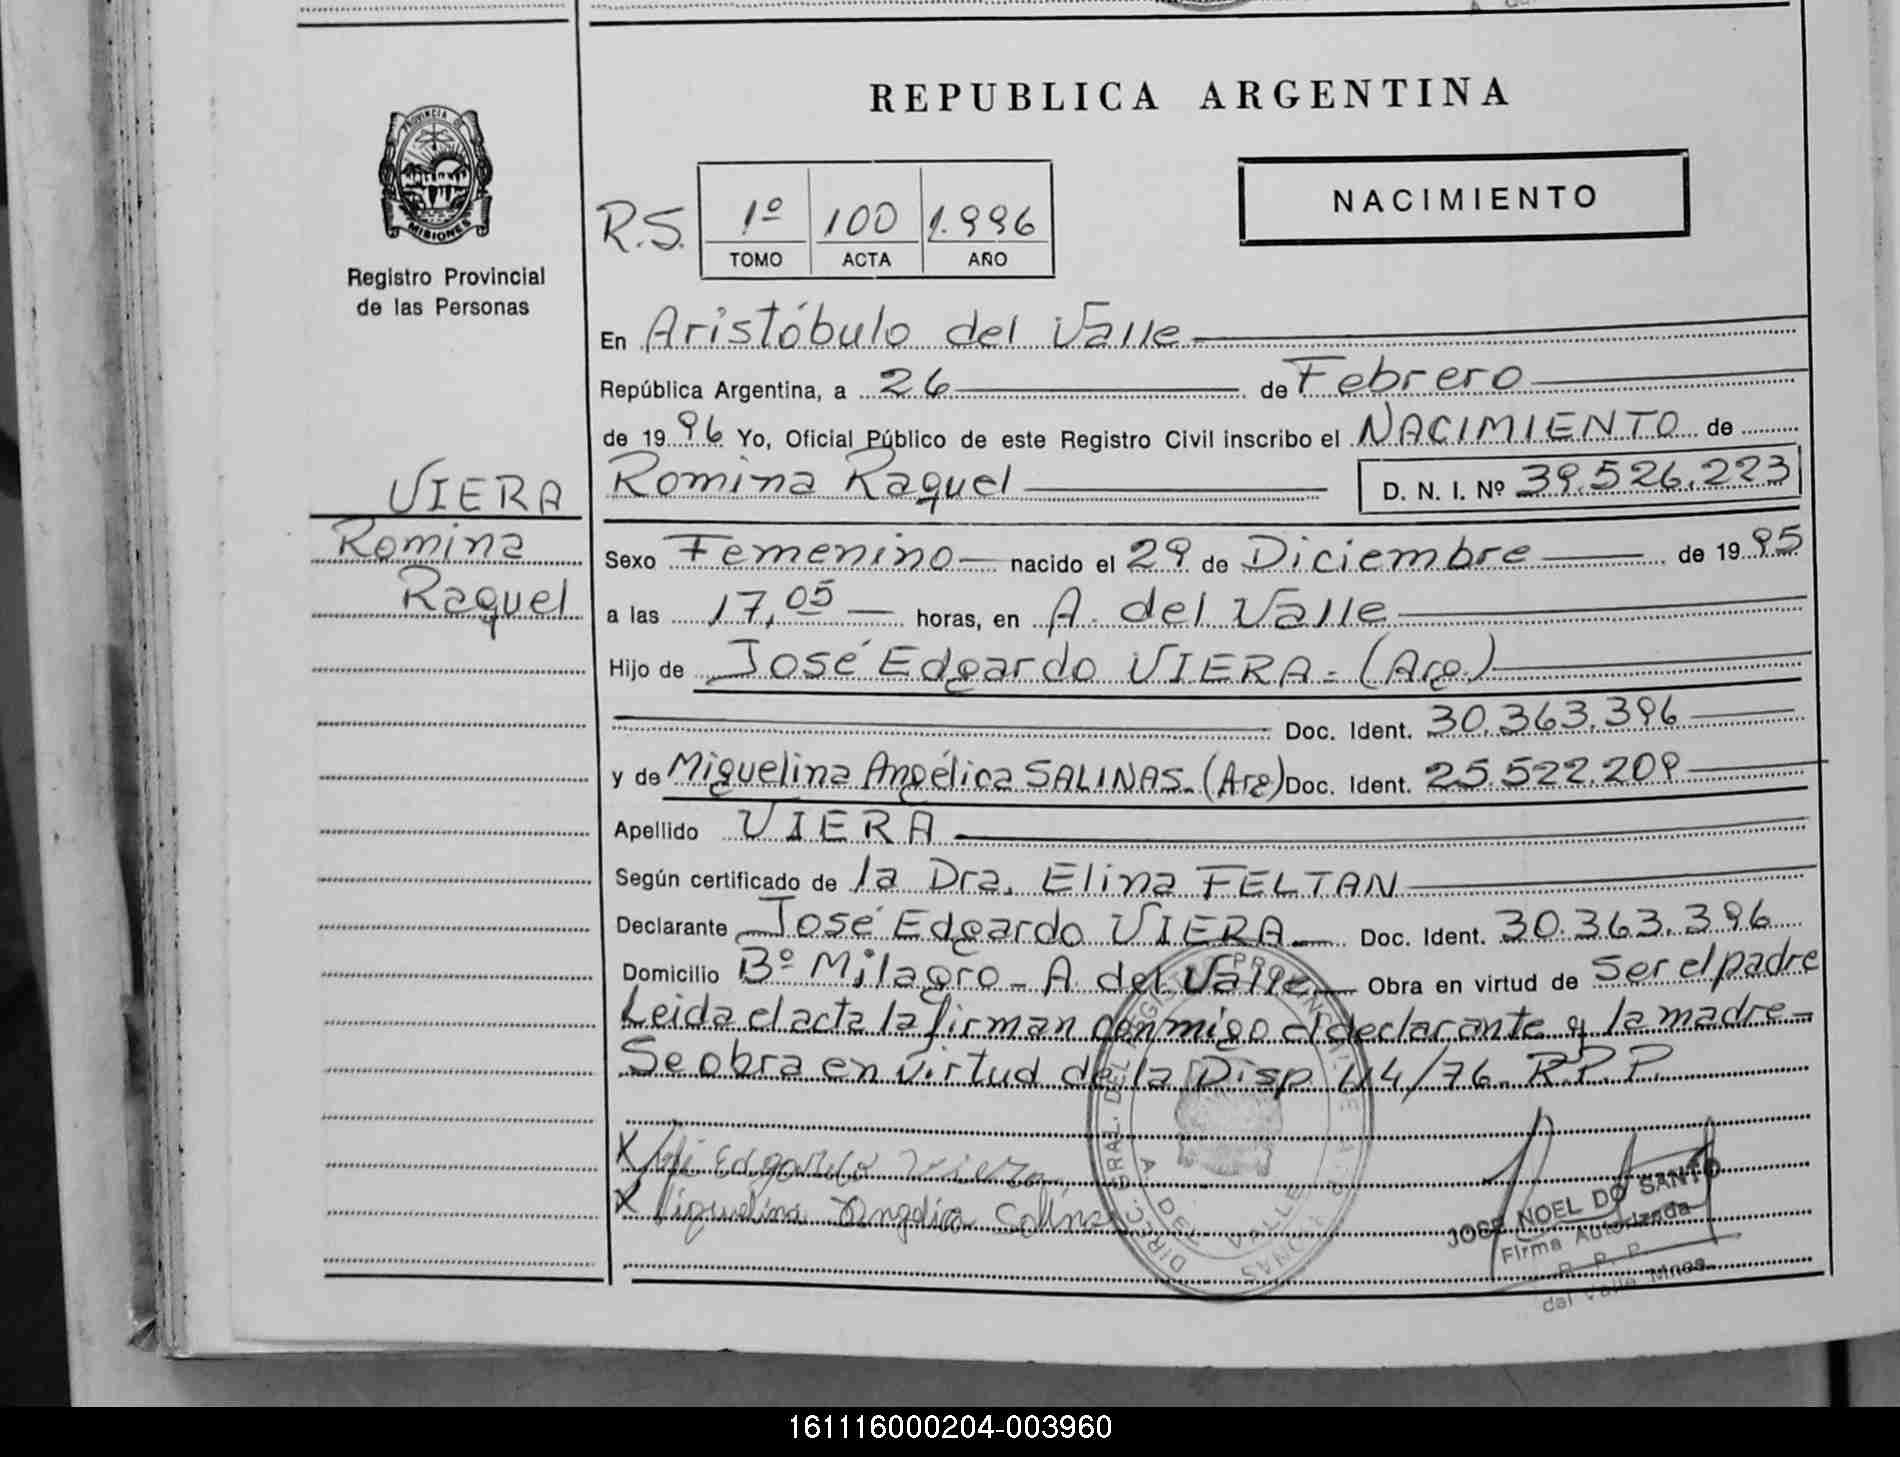 REPUBLICA ARGENTINA
PROVINCIA DE
MISIONES
Registro Provincial
de las Personas
NACIMIENTO
R.S. 1º 100 1.996
TOMO ACTA AÑO
En Aristóbulo del Valle
República Argentina, a 26 de Febrero
de 1996 Yo, Oficial Público de este Registro Civil inscribo el NACIMIENTO de
VIERA
Romina Raquel
Romina Raquel D. N. I. Nº 39.526.223
Sexo Femenino nacido el 29 de Diciembre de 1995
a las 17,05 horas, en A. del Valle
Hijo de José Edgardo VIERA - (Arg.)
Doc. Ident. 30.363.396
y de Miguelina Angélica SALINAS. (Arg) Doc. Ident. 25.522.209
Apellido VIERA
Según certificado de la Dra. Elina FELTAN
Declarante José Edgardo VIERA Doc. Ident. 30.363.396
Domicilio Bº Milagro - A. del Valle Obra en virtud de Ser el padre
Leida el acta la firman conmigo el declarante y la madre -
Se obra en virtud de la Disp 44/76 R.P.P.
X Edgardo Viera
X Miguelina Angelica Salinas
DIREC. GRAL. DEL REGISTRO
A. DEL VALLE
JOSE NOEL DO SANTO
Firma Autorizada
R. P. P.
del Valle Mnes.
161116000204-003960